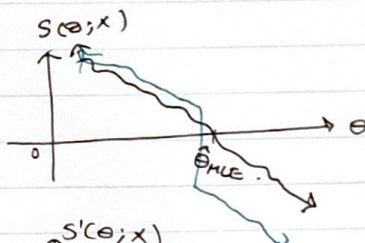 S(θ;x)
θ
0
θ̂MLE.
S'(θ;x)